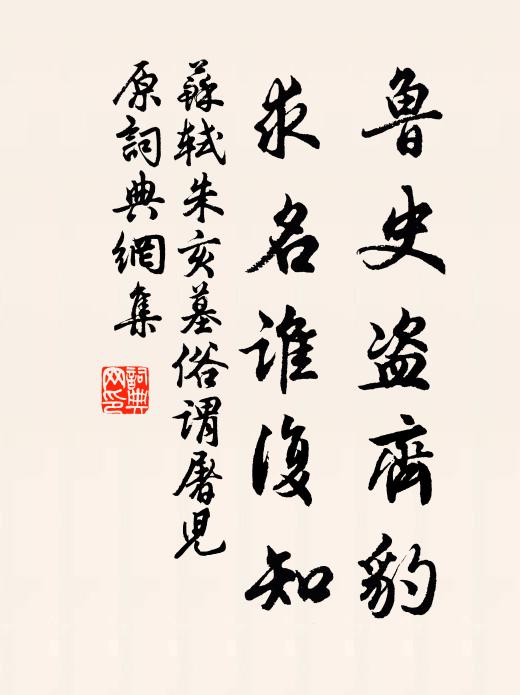 鲁史盗齊豹
求名誰復知
蘇軾朱亥墓俗謂屠兒
原詞典網集
詞典網印